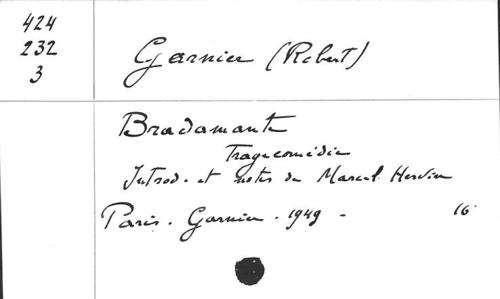 424
232
3
Garnier (Robert)
Bradamante
Tragecomédie
Introd. et notes de Marcel Hervier
Paris. Garnier. 1949 - 16